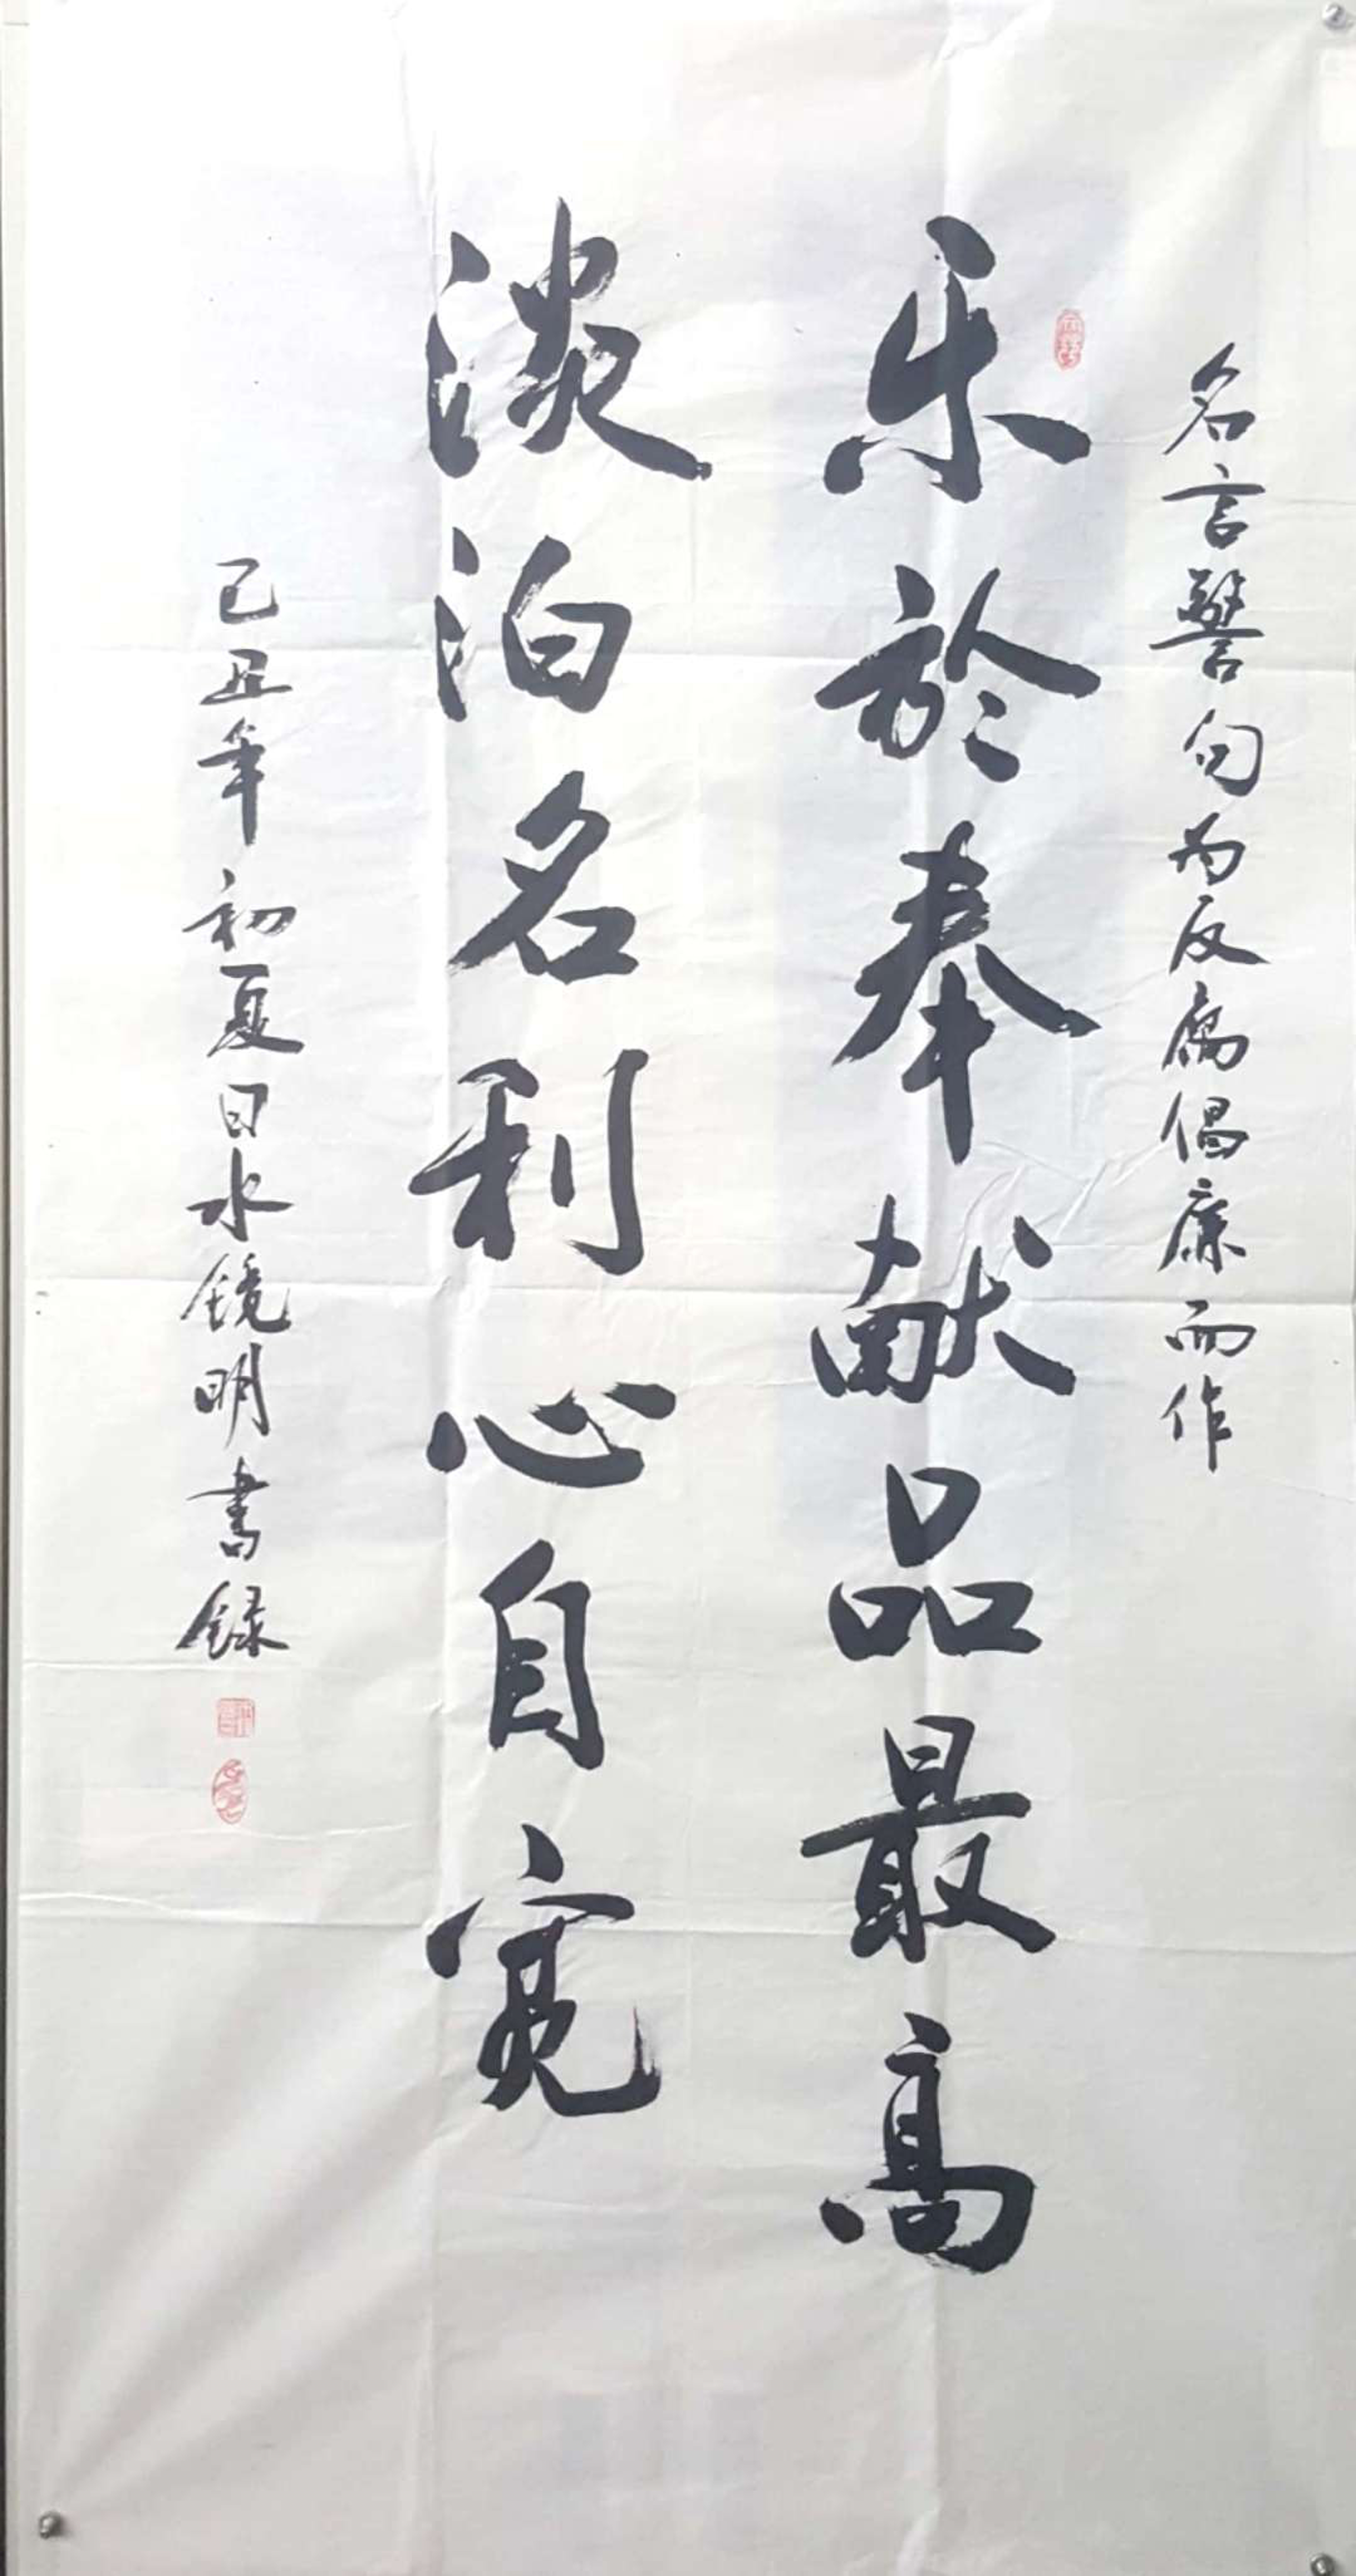 名言警句为反腐倡廉而作
乐於奉献品最高
淡泊名利心自宽
己丑年初夏日水镜明书录